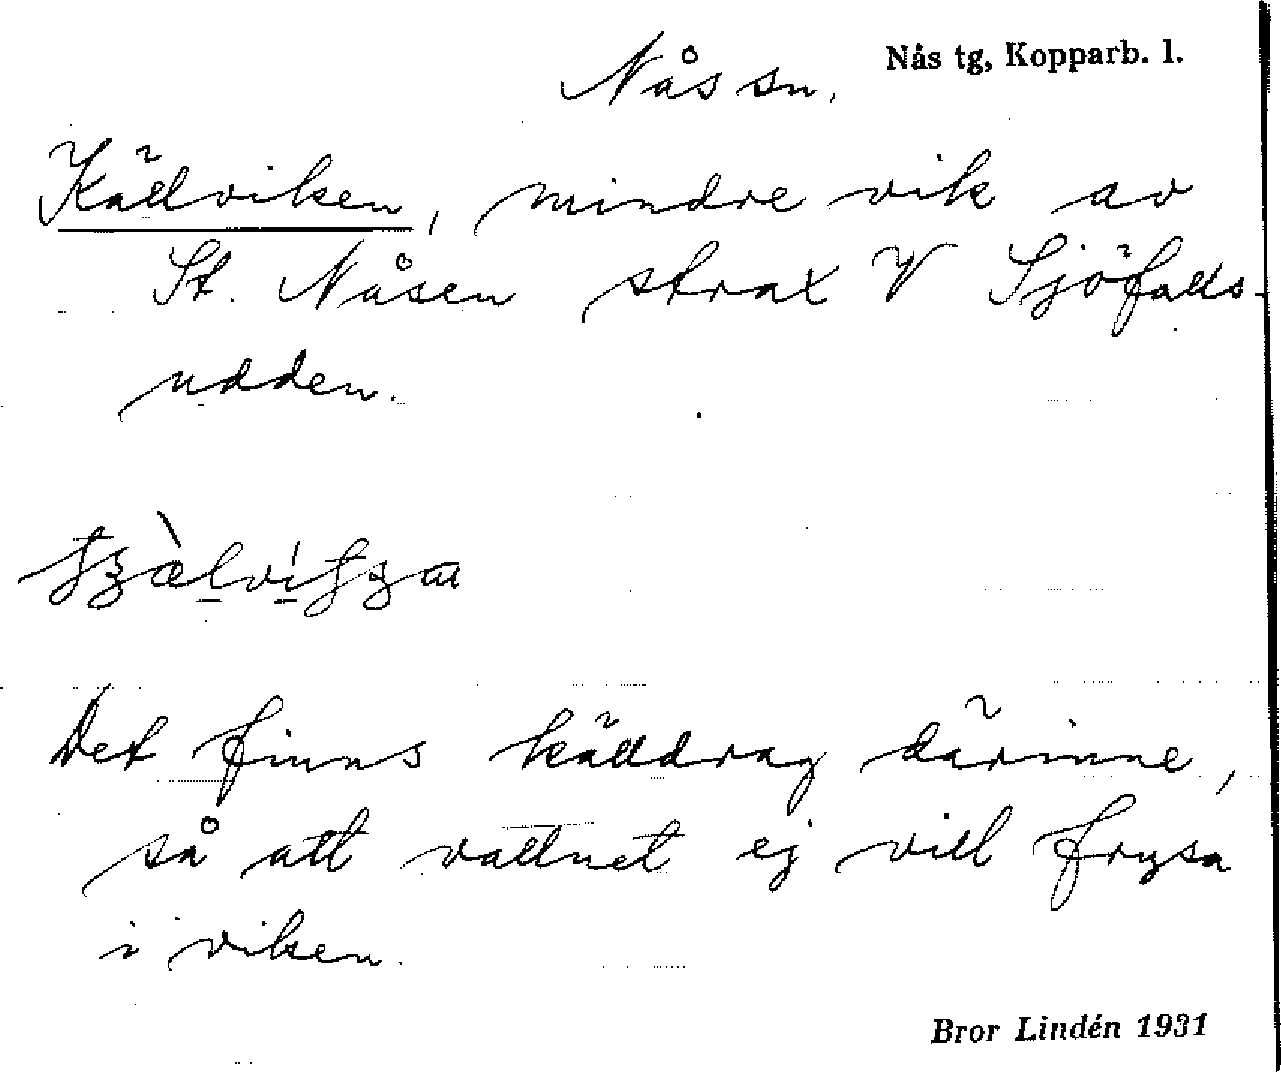 Nås sn. Nås tg, Kopparb. l.
Källviken, mindre vik av
St. Nåsen strax V Sjöfalls-
udden.
Det finns källdrag därinne,
så att vattnet ej vill frysa
i viken.
Bror Lindén 1931